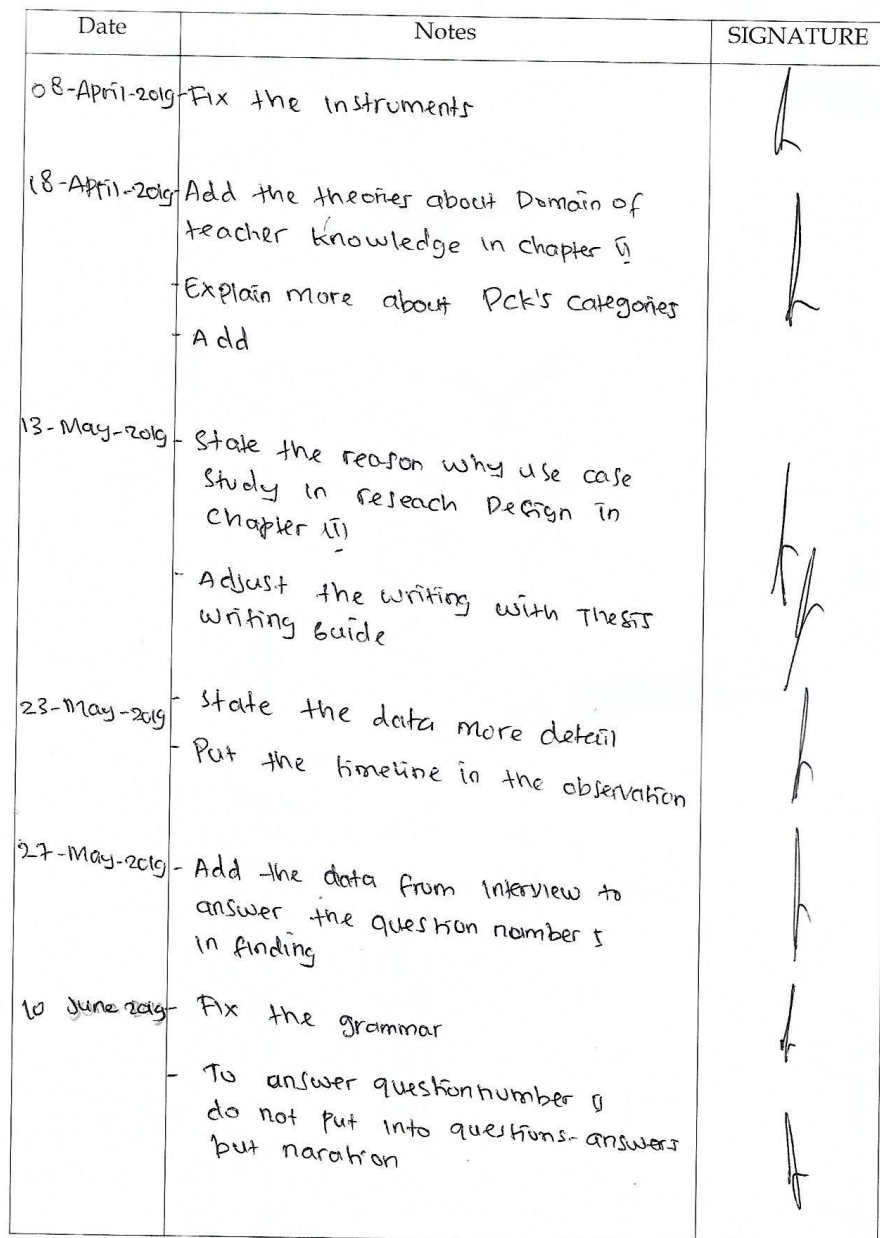 Date Notes SIGNATURE
08-April-2019 - Fix the instruments
18-April-2019 - Add the theories about Domain of
teacher knowledge in chapter II
- Explain more about Pck's categories
- Add
13-May-2019 - State the reason why use case
Study in reseach Design in
chapter III
- Adjust the writing with Thesis
writing Guide
23-May-2019 - State the data more detail
- Put the timeline in the observation
27-May-2019 - Add the data from interview to
answer the question number
in finding
10 June 2019 - Fix the grammar
- To answer question number
do not put into questions-answers
but naration